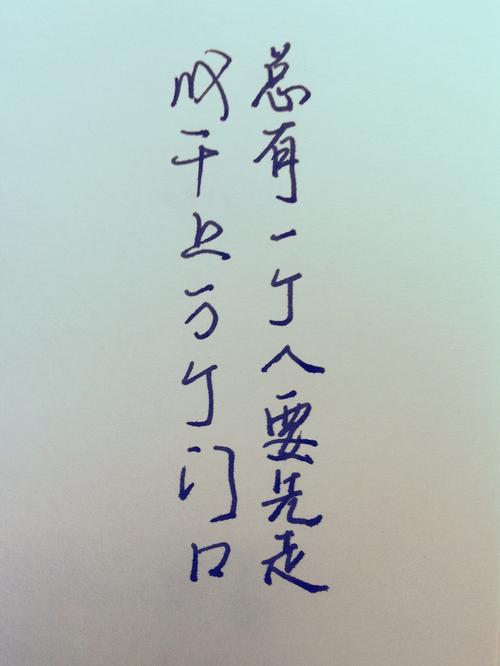 成千上万个门口
总有一个人要先走